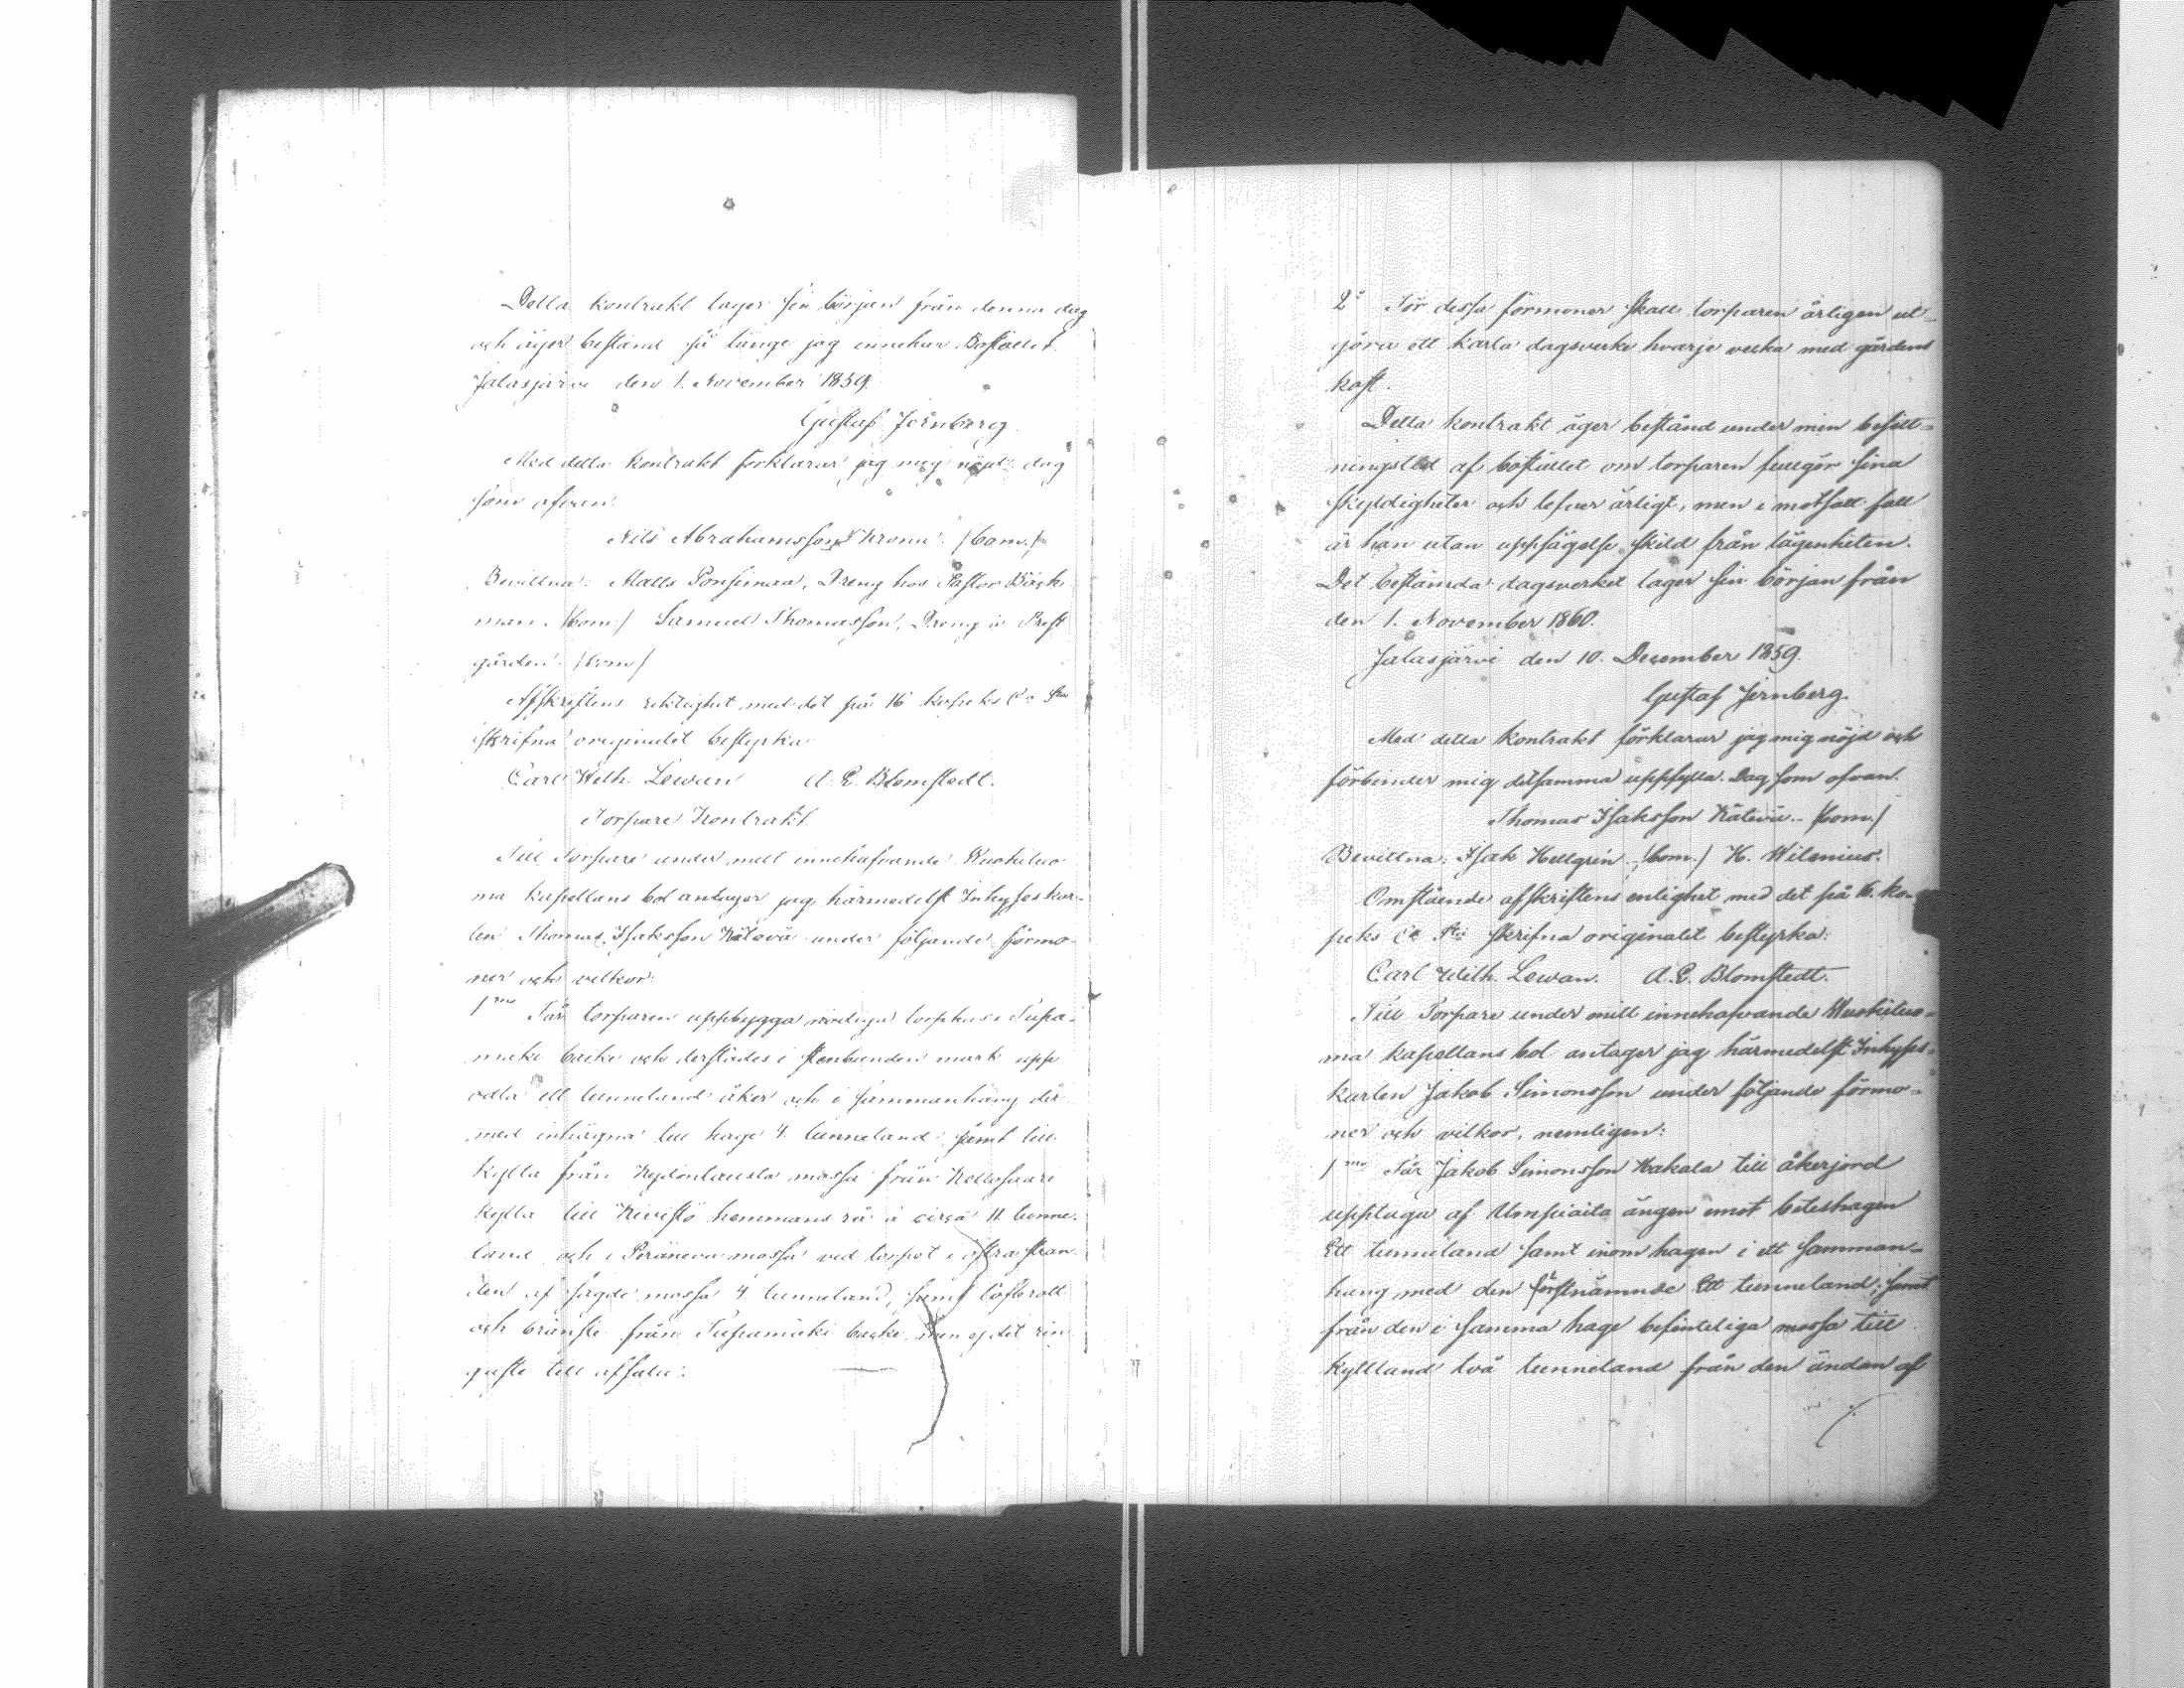 Detta kontrakt tager sin början från denna dag
och äger bestånd så länge jag innehar Bostället.
Jalasjärvi den 1. November 1859.
Gustaf Jernberg.
Med detta kontrakt förklarar jag mig nöjd: dag
som ofvan.
Nils Abrahamsson Krona. /bom./
Bevittna: Matts Ponsimaa, Dreng hos Pastor Bäck
man. /bom./ Samuel Thomasson, Dreng å Prest
gården. /bom/
Afskriftens riktighet med det på 16 kopeks Ca Sta
skrifna originalet bestyrka
Carl Wilh. Lewan A. E. Blomstedt.
Torpare Kontrakt.
Till Torpare under mitt innehafvande Kuokiluo
ma kapellans bol antager jag härmedelst Inhyseskar-
len Thomas Isaksson Kätevä under följande förmo-
ner och vilkor:
1mo Får torparen uppbygga nödiga torphus i Tupa-
mäki backe och derstädes i stenbunden mark upp
odla ett tunneland åker och i sammanhang der
med inhägna till hage 4. tunneland samt till
kytta från mossa från
kytta till Kivistö hemmans rå á circa 11 tunne-
land och i Peräneva mossa vid torpet i östra stran
den af sagde mossa 4 tunneland, samt löfbrott
och bränsle från Tupamäki backe men ej det rin
gaste till afsalu.
2o För dessa förmoner skall torparen årligen ut-
göra ett karla dagsverke hvarje vecka med gårdens
kost.
Detta kontrakt äger bestånd under min besitt-
ningstid af bostället om torparen fullgör sina
skyldigheter och lefver ärligt, men i motsatt fall
är han utan uppsägelse skild från lägenheten.
Det bestämda dagsverket tager sin början från
den 1. November 1860.
Jalasjärvi den 10. December 1859.
Gustaf Jernberg.
Med detta kontrakt förklarar jag mig nöjd och
förbinder mig detsamma uppfylla. Dag som ofvan.
Thomas Isaksson Kätevä.. /bom./
Bevittna: Isak Hellgrén. /bom./ H. Wilenius.
Omstående afskriftens enlighet med det på 16. ko-
peks Ca Sta skrifna originalet bestyrka:
Carl Wilh. Lewan. A. E. Blomstedt.
Till Torpare under mitt innehafvande Kuokiluo-
ma kapellans bol antager jag härmedelst Inhyses-
karlen Jakob Simonsson under följande förmo-
ner och vilkor, nemligen:
1mo Får Jakob Simonsson Hakala till åkerjord
upptaga af Umpiaita ängen emot beteshagen
Ett tunneland samt inom hagen i ett samman-
hang med den förstnämnde Ett tunneland; samt
från den i samma hage befinteliga mossa till
kyttland två tunneland från den ändan af
./.